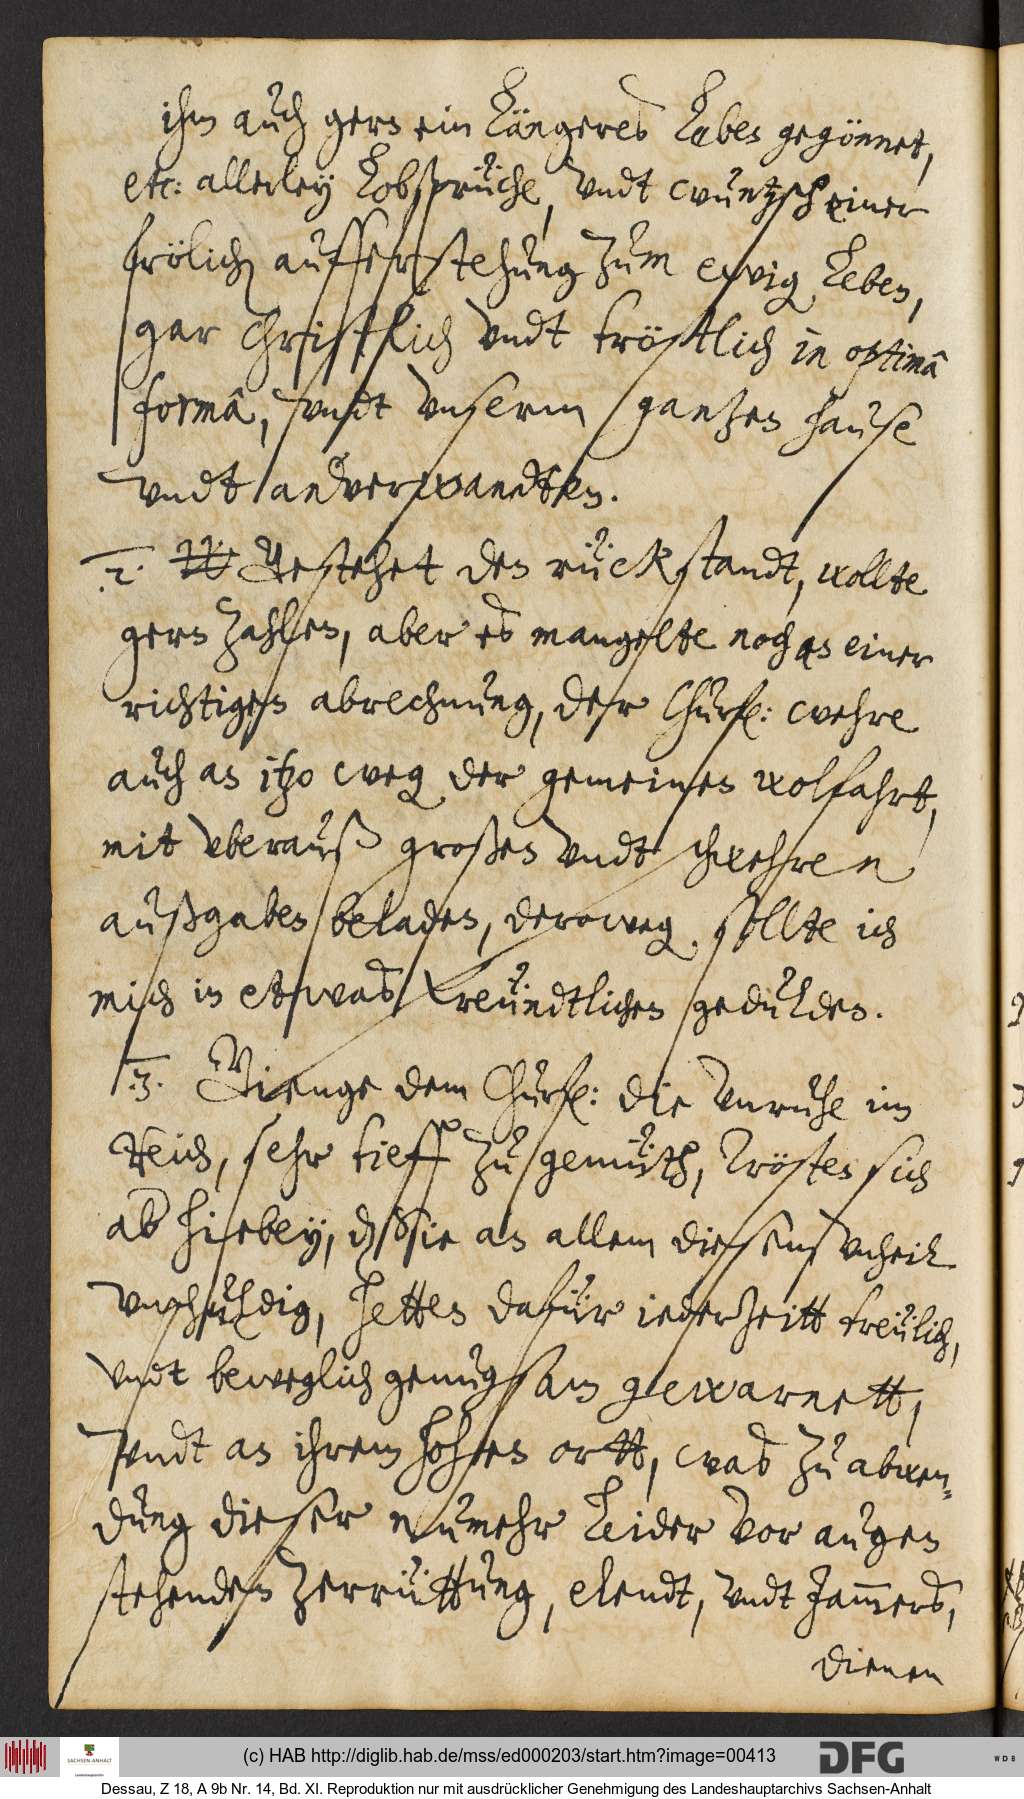 ihm auch gern ein Längeres Leben gegönnet,
etc: allerley Lobsprüche, vndt wüntzsch einer
frölich aufferstehung zum ewig Leben,
gar Christlich vndt tröstlich in optimâ
formâ, sundt vnserm gantzen hause
vndt andverwandten.
.2. Gestehet den rückstandt, wollte
gern zahlen, aber es mangelte noch an einer
richtigen abrechnung, der Churfl: wehre
auch an itzo weg der gemeinen wolfahrt,
mit vberauß großen vndt schwehren
außgaben beladen, deroweg sollte ich
mich in etwas freündtlichen gedulden.
.3. Gienge dem Churfl: die vnruhe im
Reich, sehr tieff zu gemüth, Trösten sich
ab hiebey, daß sie an allem diesem vnheil
vnschuldig, hetten dafür iederzeitt treülich,
vndt beweglich genugsam gewarnett,
vndt an ihrem hohen ortt, was zu abwen-
dung dieser numehr Leider vor augen
stehenden Zerrüttung, elendt, vndt Jam̄ers,
dienen
(c) HAB http://diglib.hab.de/mss/ed000203/start.htm?image=00413
SACHSEN-ANHALT
DFG
WDB
Dessau, Z 18, A 9b Nr. 14, Bd. XI. Reproduktion nur mit ausdrücklicher Genehmigung des Landeshauptarchivs Sachsen-Anhalt